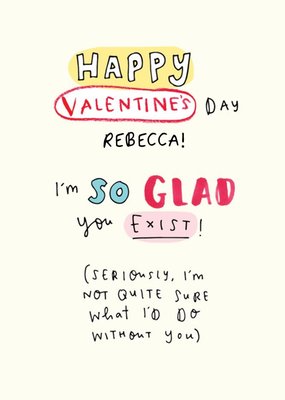 HAPPY
VALENTINE'S DAY
REBECCA!
I'm SO GLAD
you EXIST!
(SERIOUSLY, I'm
NOT QUITE SURE
WHAT I'D DO
WITHOUT YOU)